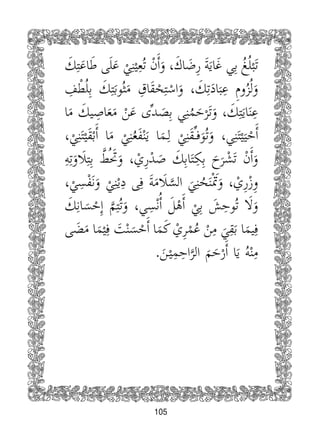 تَبْلُغُ بِي غَايَةَ رِضَاكَ، وَأَنْ تُعِيْنِيْ عَلَى طَاعَتِكَ
وَلُزُومِ عِبَادَتِكَ، وَاسْتِحْقَاقِ مَثُوبَتِكَ بِلُطْفِ
عِنَايَتِكَ، وَتَرْحَمُنِي بِصَدِّى عَنْ مَعَاصِيكَ مَا
أَحْيَيْتَنِي، وَتُوَفِّقَنِيْ لِمَا يَنْفَعُنِيْ مَا أَبْقَيْتَنِيْ،
وَأَنْ تَشْرَحَ بِكِتَابِكَ صَدْرِيْ، وَتَحُطَّ بِتِلَاوَتِهِ
وِزْرِيْ، وَتَمْنَحَنِيَ السَّلَامَةَ فِى دِيْنِيْ وَنَفْسِيْ،
وَلَا تُوحِشَ بِيْ أَهْلَ أُنْسِي، وَتُتِمَّ إِحْسَانَكَ
فِيمَا بَقِيَ مِنْ عُمْرِيْ كَمَا أَحْسَنْتَ فِيْمَا مَضَى
مِنْهُ يَا أَرْحَمَ الرَّاحِمِيْنَ.
105